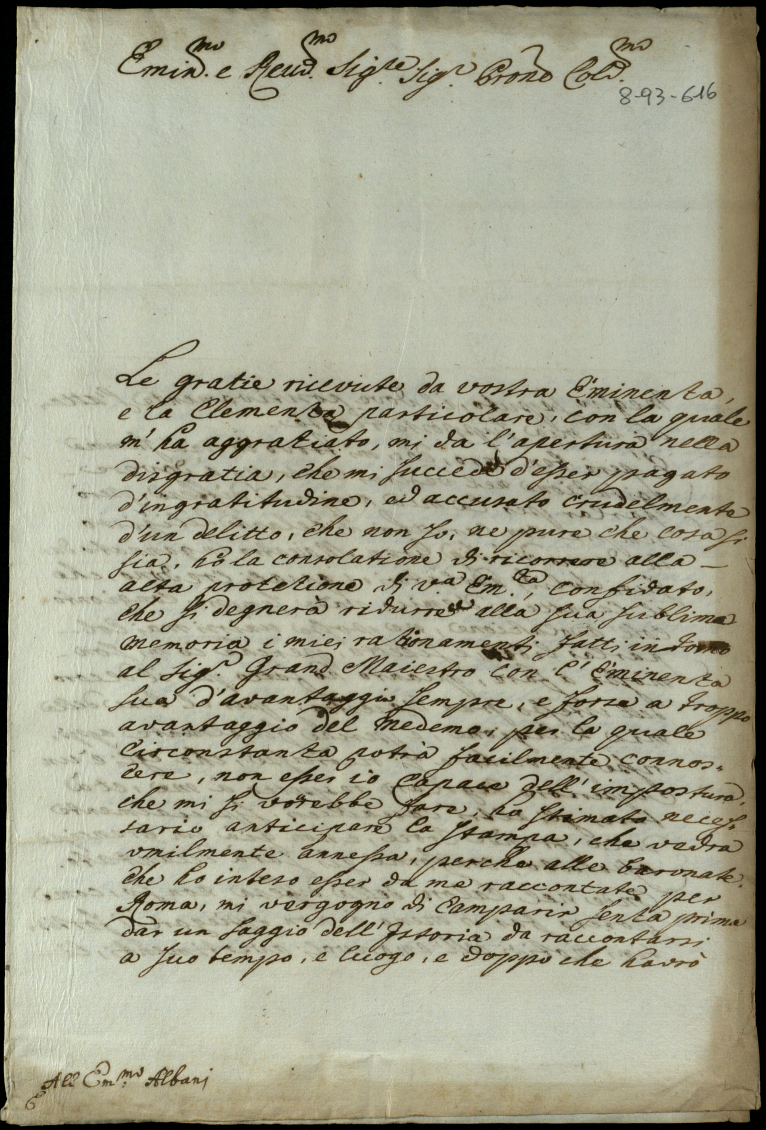 Emin.mo e Reud.mo Sig.re Sig.r Prone Col.mo
8-93-616
Le gratie riceviute da vostra Eminenta,
e la Clementa particolare, con la quale
m' ha aggratiato, mi da l'apertura nella
disgratia, che mi succede d'esser pagato
d'ingratitudine, ed accusato crudelmente
d'un delitto, che non so, ne pure che cosa si
sia, hò la consolatione di ricorrere alla
alta protetione di v.ra Em.ta, confidato,
che si degnerà ridurre alla sua sublima
memoria i miei rationamenti fatti in torno
al Sig.r Grand Maiestro con l'Eminenta
sua d'avantaggio sempre, e forse a troppo
avantaggio del medemo, per la quale
Circonstanta potrà facilmente connos-
cere, non esser io Capace dell'impostura,
che mi si vorebbe fare, ho stimato neces-
sario anticipare la stampa, che vedra
vmilmente annessa, perche alle baronate,
che ho inteso esser da me raccontate per
Roma, mi vergogno di Camparir senta prima
dar un saggio dell'Istoria da raccontarsi
a suo tempo, e luogo, e doppo che havrò
All Em.mo Albani
6